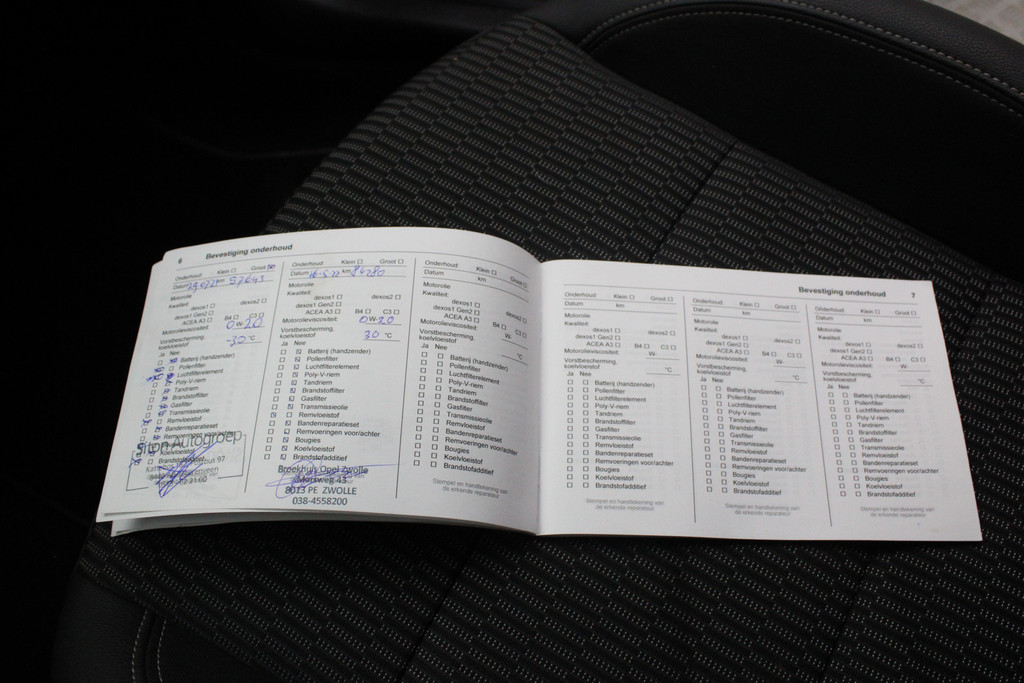 6 Bevestiging onderhoud
Onderhoud Klein Groot
Datum km 57643
Motorolie
Kwaliteit:
dexos1 dexos2
dexos1 Gen2
ACEA A3 B4 C3
Motorolieviscositeit: 0W-20
Vorstbescherming,
koelvloeistof -30 °C
Ja Nee
Batterij (handzender)
Pollenfilter
Luchtfilterelement
Poly-V-riem
Tandriem
Brandstoffilter
Gasfilter
Transmissieolie
Remvloeistof
Bandenreparatieset
Remvoeringen voor/achter
Bougies
Koelvloeistof
Brandstofadditief
Siton Autogroep
Onderhoud Klein Groot
Datum 16-5-22 km 84280
Motorolie
Kwaliteit:
dexos1 dexos2
dexos1 Gen2
ACEA A3 B4 C3
Motorolieviscositeit: 0W-20
Vorstbescherming,
koelvloeistof 30 °C
Ja Nee
Batterij (handzender)
Pollenfilter
Luchtfilterelement
Poly-V-riem
Tandriem
Brandstoffilter
Gasfilter
Transmissieolie
Remvloeistof
Bandenreparatieset
Remvoeringen voor/achter
Bougies
Koelvloeistof
Brandstofadditief
Broekhuis Opel Zwolle
Marsweg 43
8013 PE ZWOLLE
038-4558200
Onderhoud Klein Groot
Datum km
Motorolie
Kwaliteit:
dexos1 dexos2
dexos1 Gen2
ACEA A3 B4 C3
Motorolieviscositeit: W-
Vorstbescherming,
koelvloeistof °C
Ja Nee
Batterij (handzender)
Pollenfilter
Luchtfilterelement
Poly-V-riem
Tandriem
Brandstoffilter
Gasfilter
Transmissieolie
Remvloeistof
Bandenreparatieset
Remvoeringen voor/achter
Bougies
Koelvloeistof
Brandstofadditief
Stempel en handtekening van
de erkende reparateur
Bevestiging onderhoud 7
Onderhoud Klein Groot
Datum km
Motorolie
Kwaliteit:
dexos1 dexos2
dexos1 Gen2
ACEA A3 B4 C3
Motorolieviscositeit: W-
Vorstbescherming,
koelvloeistof °C
Ja Nee
Batterij (handzender)
Pollenfilter
Luchtfilterelement
Poly-V-riem
Tandriem
Brandstoffilter
Gasfilter
Transmissieolie
Remvloeistof
Bandenreparatieset
Remvoeringen voor/achter
Bougies
Koelvloeistof
Brandstofadditief
Stempel en handtekening van
de erkende reparateur
Onderhoud Klein Groot
Datum km
Motorolie
Kwaliteit:
dexos1 dexos2
dexos1 Gen2
ACEA A3 B4 C3
Motorolieviscositeit: W-
Vorstbescherming,
koelvloeistof °C
Ja Nee
Batterij (handzender)
Pollenfilter
Luchtfilterelement
Poly-V-riem
Tandriem
Brandstoffilter
Gasfilter
Transmissieolie
Remvloeistof
Bandenreparatieset
Remvoeringen voor/achter
Bougies
Koelvloeistof
Brandstofadditief
Stempel en handtekening van
de erkende reparateur
Onderhoud Klein Groot
Datum km
Motorolie
Kwaliteit:
dexos1 dexos2
dexos1 Gen2
ACEA A3 B4 C3
Motorolieviscositeit: W-
Vorstbescherming,
koelvloeistof °C
Ja Nee
Batterij (handzender)
Pollenfilter
Luchtfilterelement
Poly-V-riem
Tandriem
Brandstoffilter
Gasfilter
Transmissieolie
Remvloeistof
Bandenreparatieset
Remvoeringen voor/achter
Bougies
Koelvloeistof
Brandstofadditief
Stempel en handtekening van
de erkende reparateur